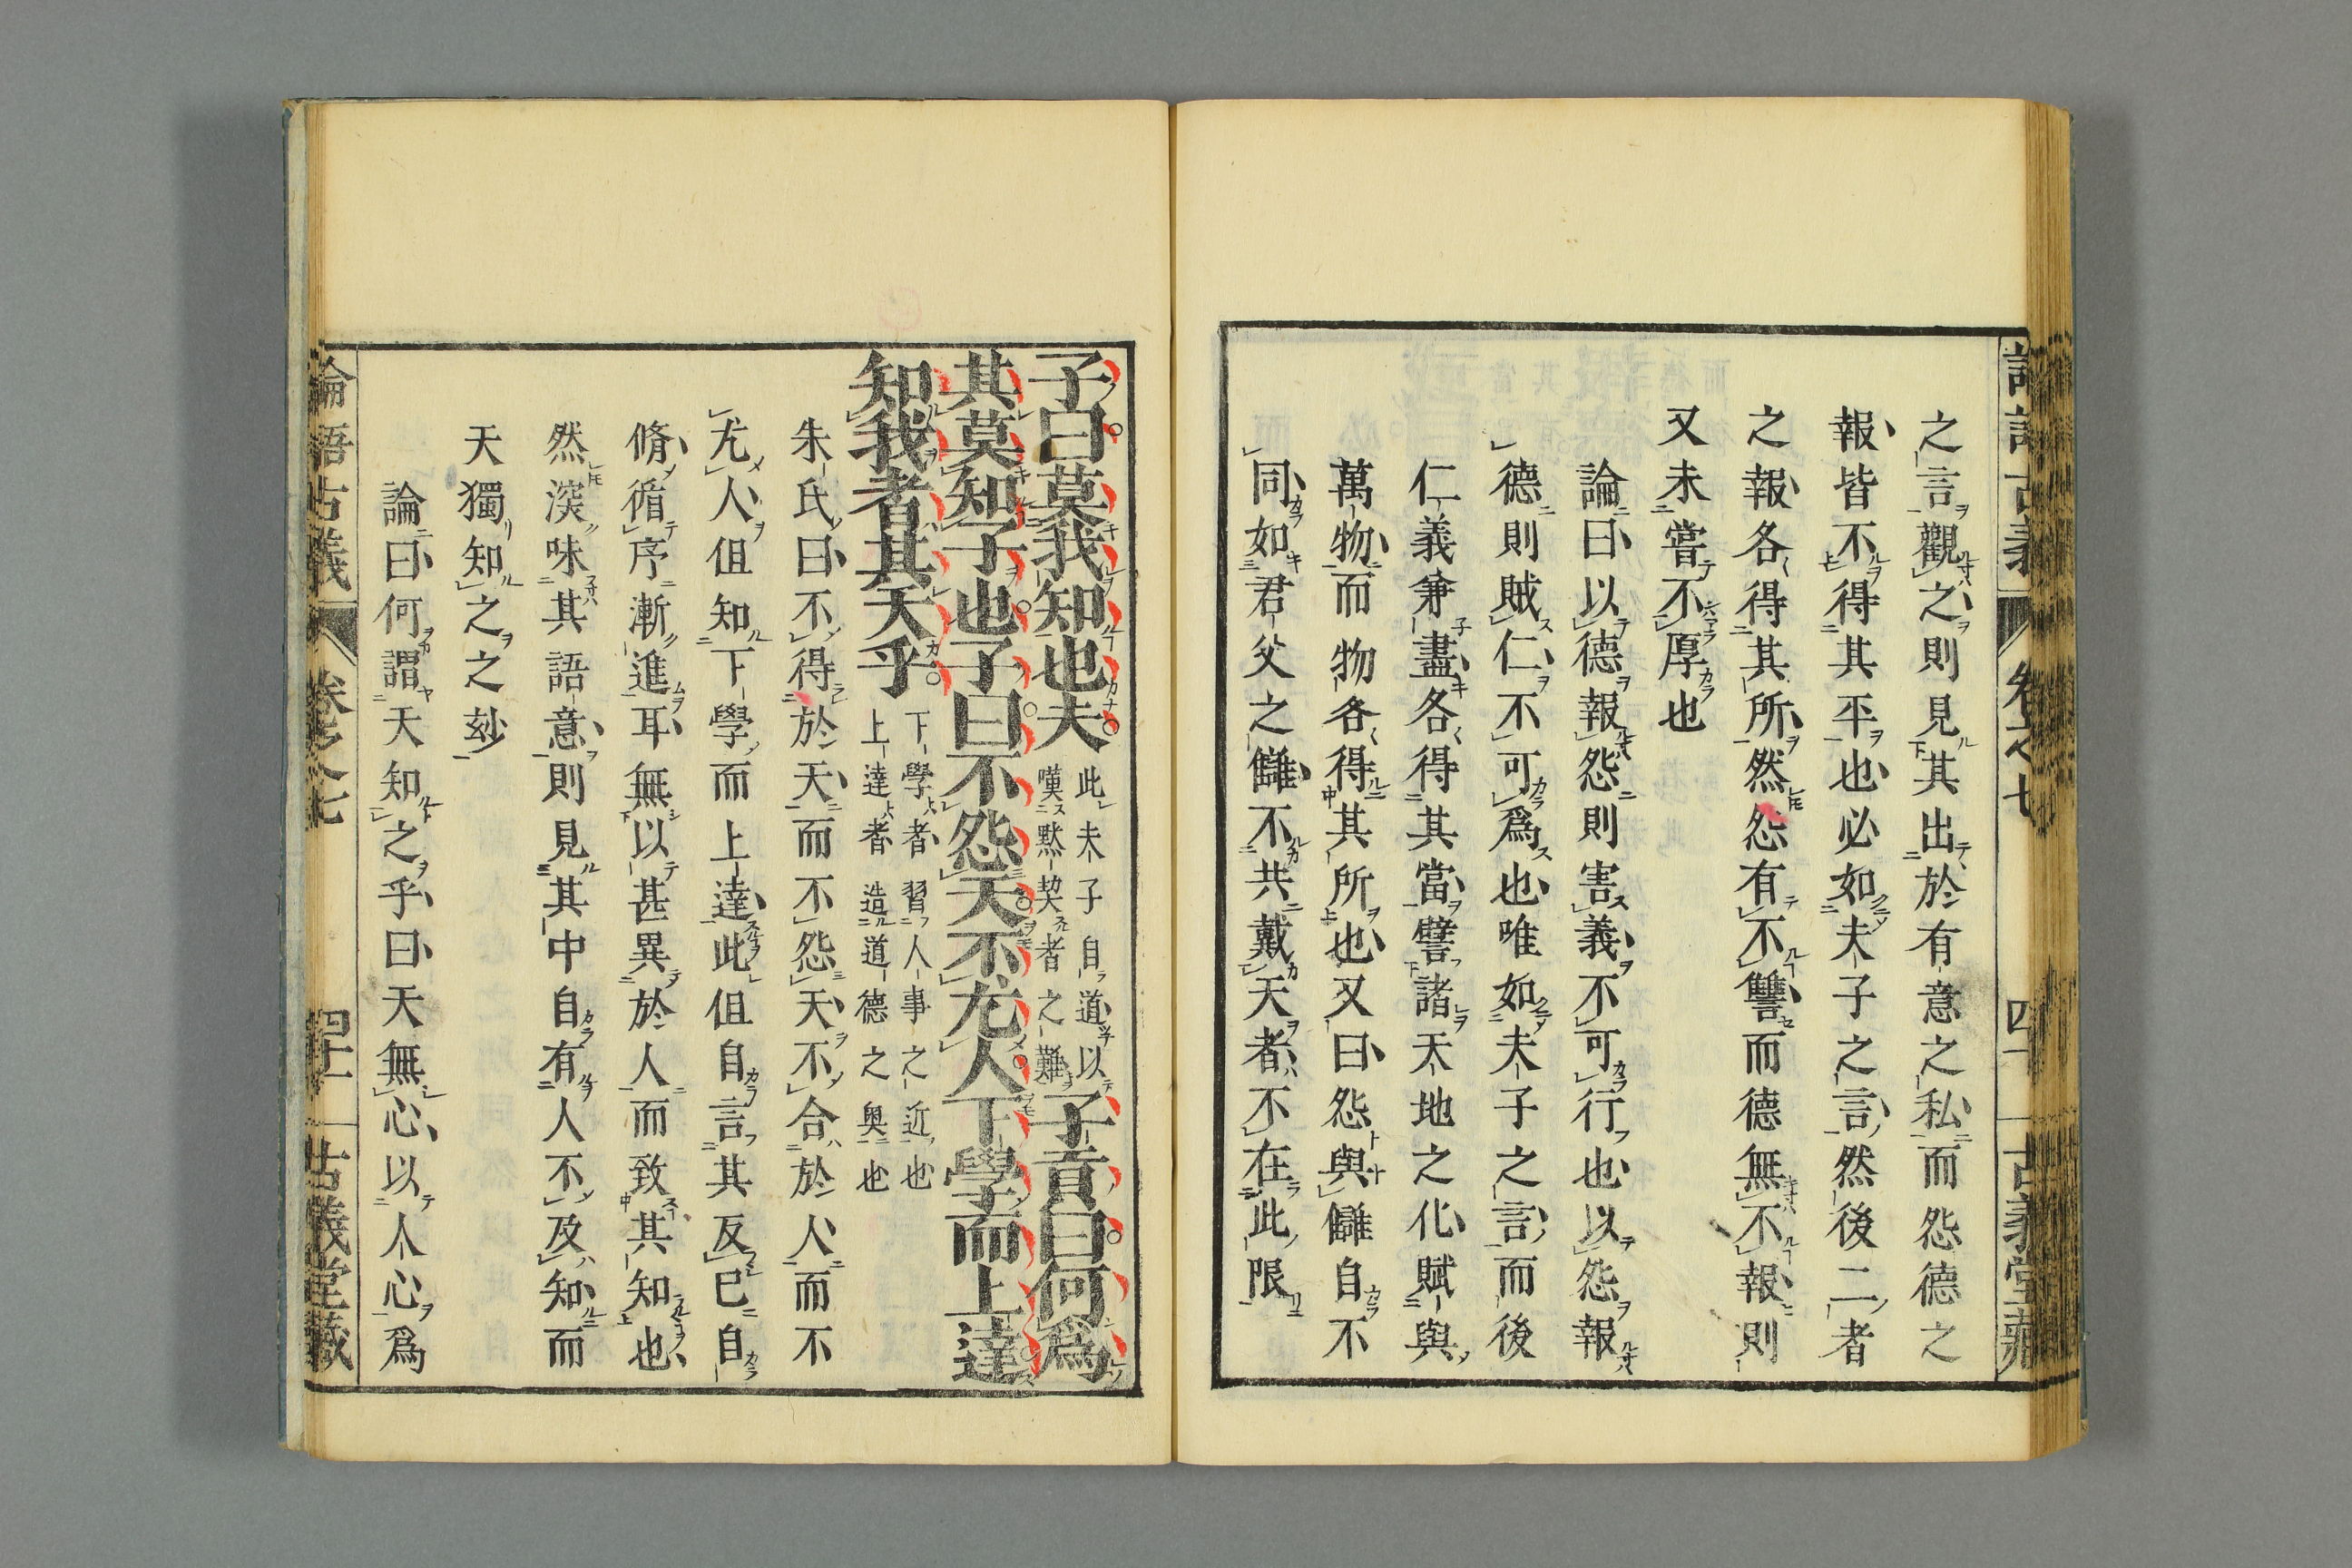 之言觀之則見其出於有意之私而怨德之
報皆不得其平也必如夫子之言然後二者
之報各得其所然怨有不讐而德無不報則
又未嘗不厚也
論曰以德報怨則害義不可行也以怨報
德則賊仁不可爲也唯如夫子之言而後
仁義兼盡各得其當譬諸天地之化賦與
萬物而物各得其所也又曰怨與讎自不
同如君父之讎不共戴天者不在此限
子曰莫我知也夫
此未子自道以
嘆默契者之難
子貢曰何爲
其莫知子也子曰不怨天不尤人下學而上達
知我者其天乎
下學者習人事之近也
上達者造道德之奥也
朱氏曰不得於天而不怨天不合於人而不
尤人但知下學而上達此但自言其反己自
脩循序漸進耳無以甚異於人而致其知也
然深味其語意則見其中自有人不及知而
天獨知之之玅
論曰何謂天知之乎曰天無心以人心爲
論語古義
卷之七
四十一
古義堂藏